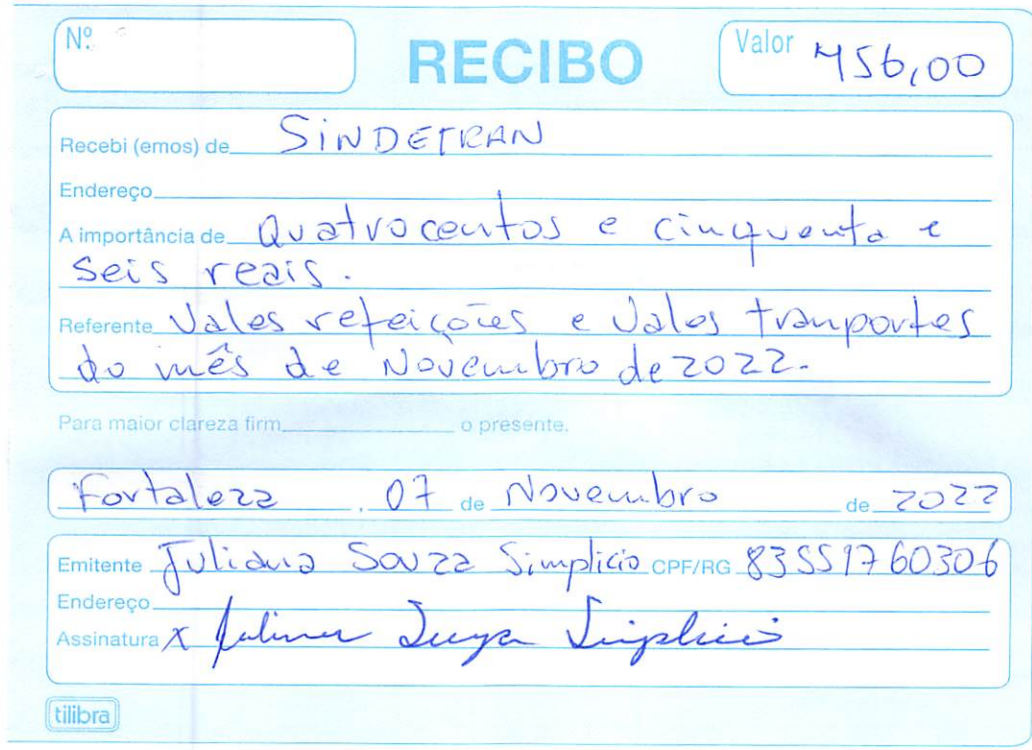 Nº
RECIBO
Valor 456,00
Recebi (emos) de SINDETRAN
Endereço
A importância de Quatrocentos e cinquenta e
seis reais.
Referente Vales refeições e Vales tranportes
do mês de Novembro de 2022.
Para maior clareza firm o presente.
Fortaleza, 07 de Novembro de 2022
Emitente Juliana Souza Simplicio CPF/RG 83551760306
Endereço
Assinatura x Juliana Souza Simplicio
tilibra